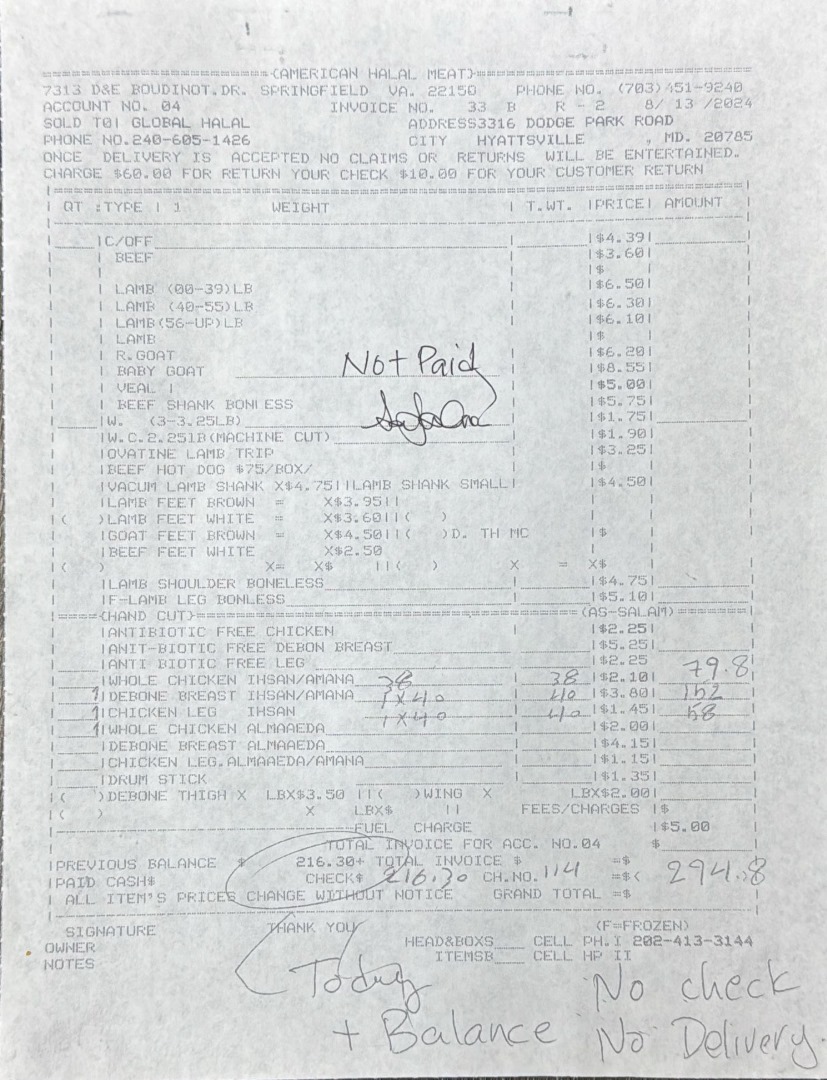 (AMERICAN HALAL MEAT)
7313 D&E BOUDINOT.DR. SPRINGFIELD VA. 22150 PHONE NO. (703)451-9240
ACCOUNT NO. 04 INVOICE NO. 33 B R - 2 8/ 13 /2024
SOLD TO: GLOBAL HALAL ADDRESS3316 DODGE PARK ROAD
PHONE NO.240-605-1426 CITY HYATTSVILLE , MD. 20785
ONCE DELIVERY IS ACCEPTED NO CLAIMS OR RETURNS WILL BE ENTERTAINED.
CHARGE $60.00 FOR RETURN YOUR CHECK $10.00 FOR YOUR CUSTOMER RETURN
QT :TYPE | 1 WEIGHT | T.WT. |PRICE| AMOUNT
|C/OFF |$4.39|
| BEEF |$3.60|
|$
| LAMB (00-39)LB |$6.50|
| LAMB (40-55)LB |$6.30|
| LAMB(56-UP)LB |$6.10|
| LAMB |$
| R.GOAT |$6.20|
| BABY GOAT Not Paid |$8.55|
| VEAL | |$5.00|
| BEEF SHANK BONLESS |$5.75|
|W. (3-3.25LB) |$1.75|
|W.C.2.25lB(MACHINE CUT) |$1.90|
|OVATINE LAMB TRIP |$3.25|
|BEEF HOT DOG $75/BOX/ |$
|VACUM LAMB SHANK X$4.75||LAMB SHANK SMALL| |$4.50|
|LAMB FEET BROWN = X$3.95||
|( )LAMB FEET WHITE = X$3.60||( )
|GOAT FEET BROWN = X$4.50||( )D. TH MC |$
|BEEF FEET WHITE X$2.50
|( ) X= X$ ||( ) X = X$
|LAMB SHOULDER BONELESS |$4.75|
|F-LAMB LEG BONLESS |$5.10|
====(HAND CUT)= (AS-SALAM)=
|ANTIBIOTIC FREE CHICKEN |$2.25|
|ANIT-BIOTIC FREE DEBON BREAST |$5.25|
|ANTI BIOTIC FREE LEG |$2.25
|WHOLE CHICKEN IHSAN/AMANA 38 38 |$2.10| 79.8
1 |DEBONE BREAST IHSAN/AMANA 1X40 40 |$3.80| 152
1 |CHICKEN LEG IHSAN 1X40 40 |$1.45| 58
1 |WHOLE CHICKEN ALMAAEDA |$2.00|
|DEBONE BREAST ALMAAEDA |$4.15|
|CHICKEN LEG.ALMAAEDA/AMANA |$1.15|
|DRUM STICK |$1.35|
|( )DEBONE THIGH X LBX$3.50 ||( )WING X LBX$2.00|
|( ) X LBX$ || FEES/CHARGES |$
FUEL CHARGE |$5.00
TOTAL INVOICE FOR ACC. NO.04 $
|PREVIOUS BALANCE $ 216.30+ TOTAL INVOICE $ =$
|PAID CASH$ CHECK$ 216.30 CH.NO. 114 =$( 294.8
| ALL ITEM'S PRICES CHANGE WITHOUT NOTICE GRAND TOTAL =$
SIGNATURE THANK YOU (F=FROZEN)
OWNER HEAD&BOXS CELL PH.I 202-413-3144
NOTES ITEMSB CELL HP II
Today No check
+ Balance No Delivery.